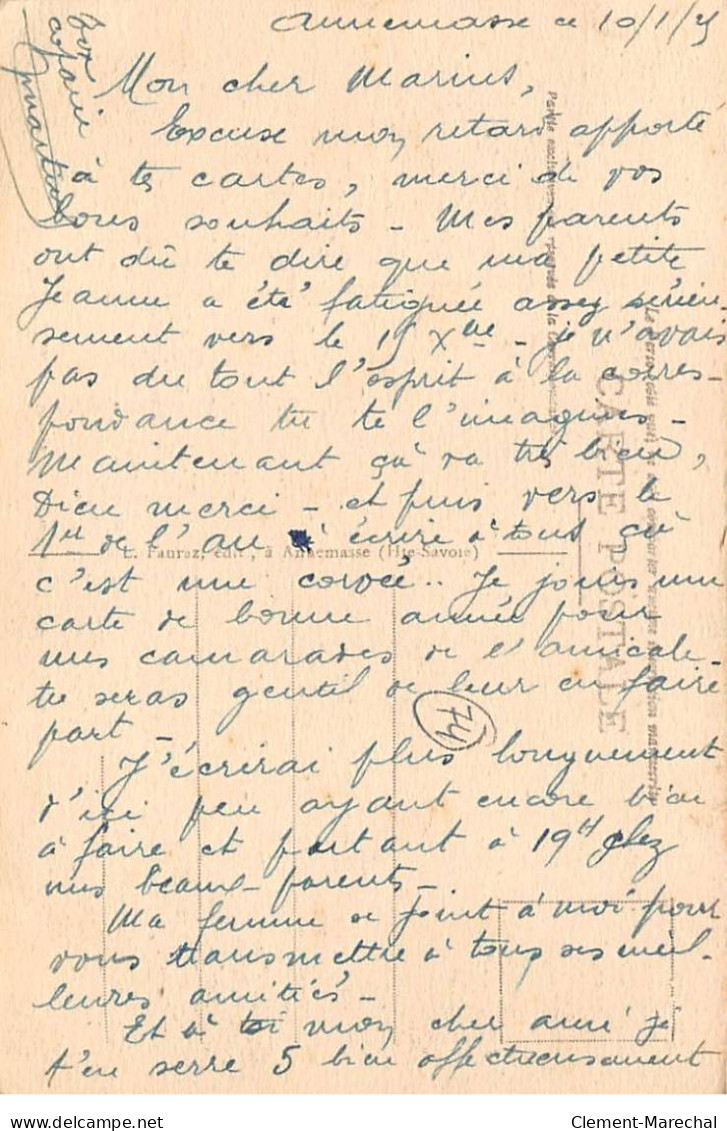 Annemasse ce 10/1/25
Mon cher Marius,
Excuse mon retard apporté
à tes cartes, merci de vos
bons souhaits - Mes parents
ont dû te dire que ma petite
Jeanne a été fatiguée assez sérieu-
sement vers le 15 Xbre - je n'avais
pas du tout l'esprit à la corres-
pondance tu te l'imagines -
Maintenant ça va très bien,
Dieu merci - et puis vers le
1er de l'an à écrire à tous ça
c'est une corvée.. Je joins une
carte de bonne année pour
mes camarades de l'amicale -
tu seras gentil de leur en faire
part -
J'écrirai plus longuement
d'ici peu ayant encore bien
à faire et partant à 19H chez
mes beaux-parents -
Ma femme se joint à moi pour
vous transmettre à tous ses meil-
leures amitiés -
Et à toi mon cher ami je
t'en serre 5 bien affectueusement
Ton
copain
74
E. Fauraz, édit., à Annemasse (Hte-Savoie)
CARTE POSTALE
Clement-Marechal